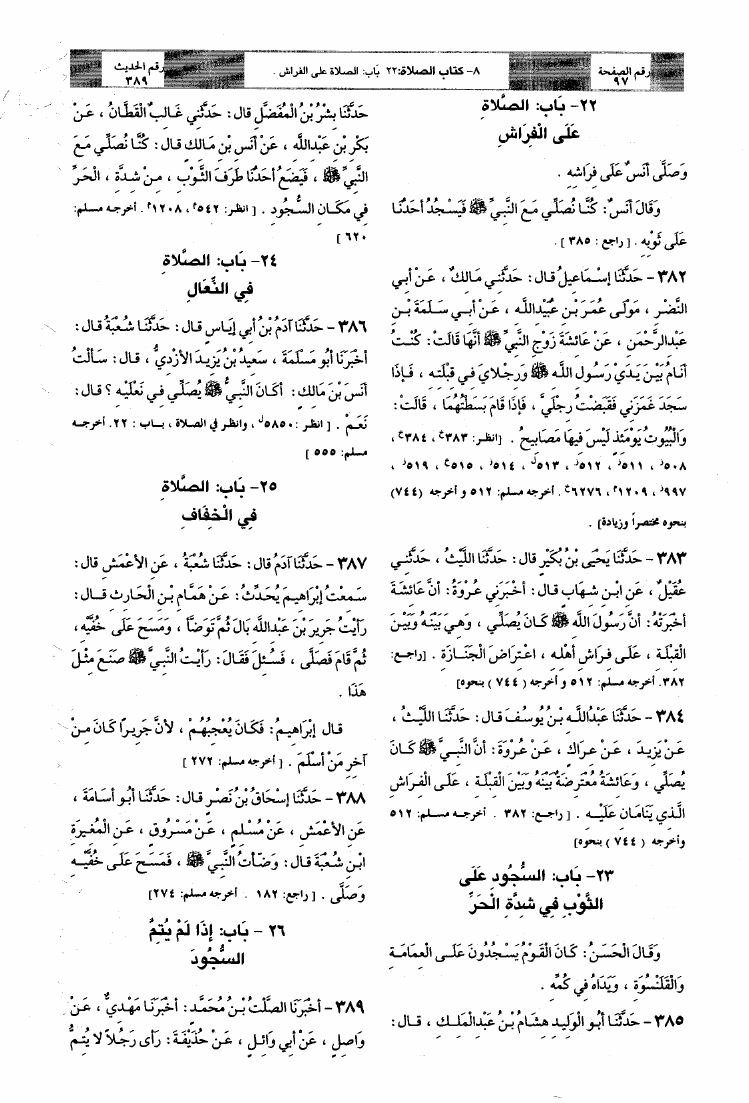 رقم الصفحة
٩٧
٨- كتاب الصلاة: ٢٢ بَاب: الصلاة على الفراش .
رقم الحديث
٣٨٩
٢٢- بَاب: الصَّلَاةِ
عَلَى الْفِرَاشِ
وَصَلَّى أَنَسٌ عَلَى فِرَاشِهِ .
وَقَالَ أَنَسٌ: كُنَّا نُصَلِّي مَعَ النَّبِيِّ ﷺ فَيَسْجُدُ أَحَدُنَا
عَلَى ثَوْبِهِ . [ راجع : ٣٨٥ ] .
٣٨٢- حَدَّثَنَا إِسْمَاعِيلُ قال: حَدَّثَنِي مَالكٌ، عَنْ أبي
النَّضْرِ ، مَوْلَى عُمَرَ بْنِ عُبَيْدِاللَّه ، عَنْ أبِي سَلَمَةَ بْنِ
عَبْدالرَّحْمَنِ ، عَنْ عَائشَةَ زَوْجِ النَّبيِّ ﷺ أنَّهَا قَالَتْ: كُنْتُ
أنَامُ بَيْنَ يَدَيْ رَسُولِ اللَّه ﷺ وَرِجْلايَ فِي قبْلَته ، فَإذَا
سَجَدَ غَمَزَنِي فَقَبَضْتُ رِجْلَيَّ ، فَإذَا قَامَ بَسَطْتُهُمَا ، قَالَتْ:
وَالْبُيُوتُ يَوْمَئذٍ لَيْسَ فيهَا مَصَابيحُ . [انظر: ٣٨٣ ، ٣٨٤ ،
٥٠٨ ، ٥١١ ، ٥١٢ ، ٥١٣ ، ٥١٤ ، ٥١٥ ، ٥١٩ ،
٩٩٧ ، ١٢٠٩ ، ٦٢٧٦ . أخرجه مسلم: ٥١٢ و أخرجه (٧٤٤)
بنحوه مختصراً وزيادة] .
٣٨٣- حَدَّثَنَا يَحْيَى بْنُ بُكَيْرٍ قال: حَدَّثَنَا اللَّيْثُ ، حَدَّثَنِي
عُقَيْلٌ ، عَنِ ابْنِ شِهَابٍ قال: أخْبَرَنِي عُرْوَةُ: أنَّ عَائشَةَ
أخْبَرَتْهُ: أنَّ رَسُولَ اللَّه ﷺ كَانَ يُصَلِّي ، وَهيَ بَيْنَهُ وَبَيْنَ
الْقبْلَة ، عَلَى فرَاشِ أهْله ، اعْتِرَاضَ الْجَنَازَة . [راجع:
٣٨٢. أخرجه مسلم: ٥١٢ و أخرجه ( ٧٤٤ ) بنحوه]
٣٨٤- حَدَّثَنَا عَبْدُاللَّه بْنُ يُوسُفَ قال: حَدَّثَنَا اللَّيْثُ ،
عَنْ يَزيدَ ، عَنْ عرَاك ، عَنْ عُرْوَةَ: أنَّ النَّبيَّ ﷺ كَانَ
يُصَلِّي ، وَعَائشَةُ مُعْتَرضَةٌ بَيْنَهُ وَبَيْنَ الْقبْلَة ، عَلَى الْفرَاش
الَّذي يَنَامَان عَلَيْه . [ راجع: ٣٨٢ . أخرجه مسلم: ٥١٢
وأخرجه ( ٧٤٤ ) بنحوه]
٢٣- بَاب: السُّجُودِ عَلَى
الثَّوْبِ فِي شِدَّةِ الْحَرِّ
وَقَالَ الْحَسَنُ: كَانَ الْقَوْمُ يَسْجُدُونَ عَلَى الْعمَامَة
وَالْقَلَنْسُوَة ، وَيَدَاهُ في كُمِّه .
٣٨٥- حَدَّثَنَا أبُو الْوَليد هشَامُ بْنُ عَبْدالْمَلك ، قال:
حَدَّثَنَا بشْرُ بْنُ الْمُفَضَّل قال: حَدَّثَني غَالبٌ الْقَطَّانُ ، عَنْ
بَكْر بْن عَبْداللَّه ، عَنْ أنَس بْن مَالك قال: كُنَّا نُصَلِّي مَعَ
النَّبيِّ ﷺ ، فَيَضَعُ أحَدُنَا طَرَفَ الثَّوْب ، منْ شدَّة ، الْحَرِّ
في مَكَان السُّجُود . [ انظر: ٥٤٢ ، ١٢٠٨ . أخرجه مسلم:
٦٢٠ ]
٢٤- بَاب: الصَّلَاةِ
فِي النِّعَالِ
٣٨٦- حَدَّثَنَا آدَمُ بْنُ أبي إيَاس قال: حَدَّثَنَا شُعْبَةُ قال:
أخْبَرَنَا أبُو مَسْلَمَةَ ، سَعيدُ بْنُ يَزيدَ الأزْديُّ ، قال: سَألْتُ
أنَسَ بْنَ مَالك: أكَانَ النَّبيُّ ﷺ يُصَلِّي في نَعْلَيْه ؟ قال:
نَعَمْ . [ انظر : ٥٨٥٠ ، وانظر في الصلاة ، باب : ٢٢. أخرجه
مسلم: ٥٥٥ ]
٢٥- بَاب: الصَّلَاةِ
فِي الْخِفَافِ
٣٨٧- حَدَّثَنَا آدَمُ قال: حَدَّثَنَا شُعْبَةُ ، عَن الأعْمَش قال:
سَمعْتُ إبْرَاهيمَ يُحَدِّثُ: عَنْ هَمَّام بْن الْحَارث قال:
رَأيْتُ جَريرَ بْنَ عَبْداللَّه بَالَ ثُمَّ تَوَضَّأ ، وَمَسَحَ عَلَى خُفَّيْه،
ثُمَّ قَامَ فَصَلَّى ، فَسُئلَ فَقَالَ: رَأيْتُ النَّبيَّ ﷺ صَنَعَ مثْلَ
هَذَا .
قال إبْرَاهيمُ: فَكَانَ يُعْجبُهُمْ ، لأنَّ جَريرًا كَانَ منْ
آخر مَنْ أسْلَمَ . [ أخرجه مسلم: ٢٧٢ ]
٣٨٨- حَدَّثَنَا إسْحَاقُ بْنُ نَصْر قال: حَدَّثَنَا أبُو أسَامَةَ ،
عَن الأعْمَش ، عَنْ مُسْلم ، عَنْ مَسْرُوق ، عَن الْمُغيرَة
ابْن شُعْبَةَ قال: وَضَّأتُ النَّبيَّ ﷺ ، فَمَسَحَ عَلَى خُفَّيْه
وَصَلَّى . [ راجع: ١٨٢ . أخرجه مسلم: ٢٧٤]
٢٦ - بَاب: إِذَا لَمْ يُتِمَّ
السُّجُودَ
٣٨٩- أخْبَرَنَا الصَّلْتُ بْنُ مُحَمَّد: أخْبَرَنَا مَهْديٌّ ، عَنْ
وَاصل ، عَنْ أبي وَائل ، عَنْ حُذَيْفَةَ: رَأى رَجُلاً لا يُتمُّ